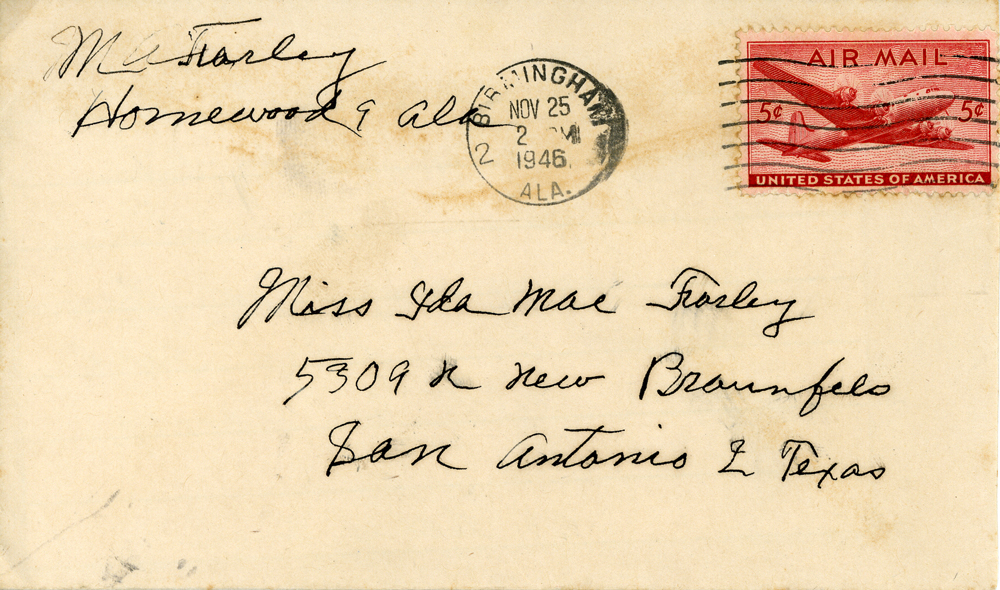 M A Farley
Homewood 9 Ala
BIRMINGHAM
NOV 25
2 PM
1946
2
ALA.
AIR MAIL
5¢ 5¢
UNITED STATES OF AMERICA
Miss Ida Mae Farley
5309 N New Braunfels
San Antonio 2 Texas